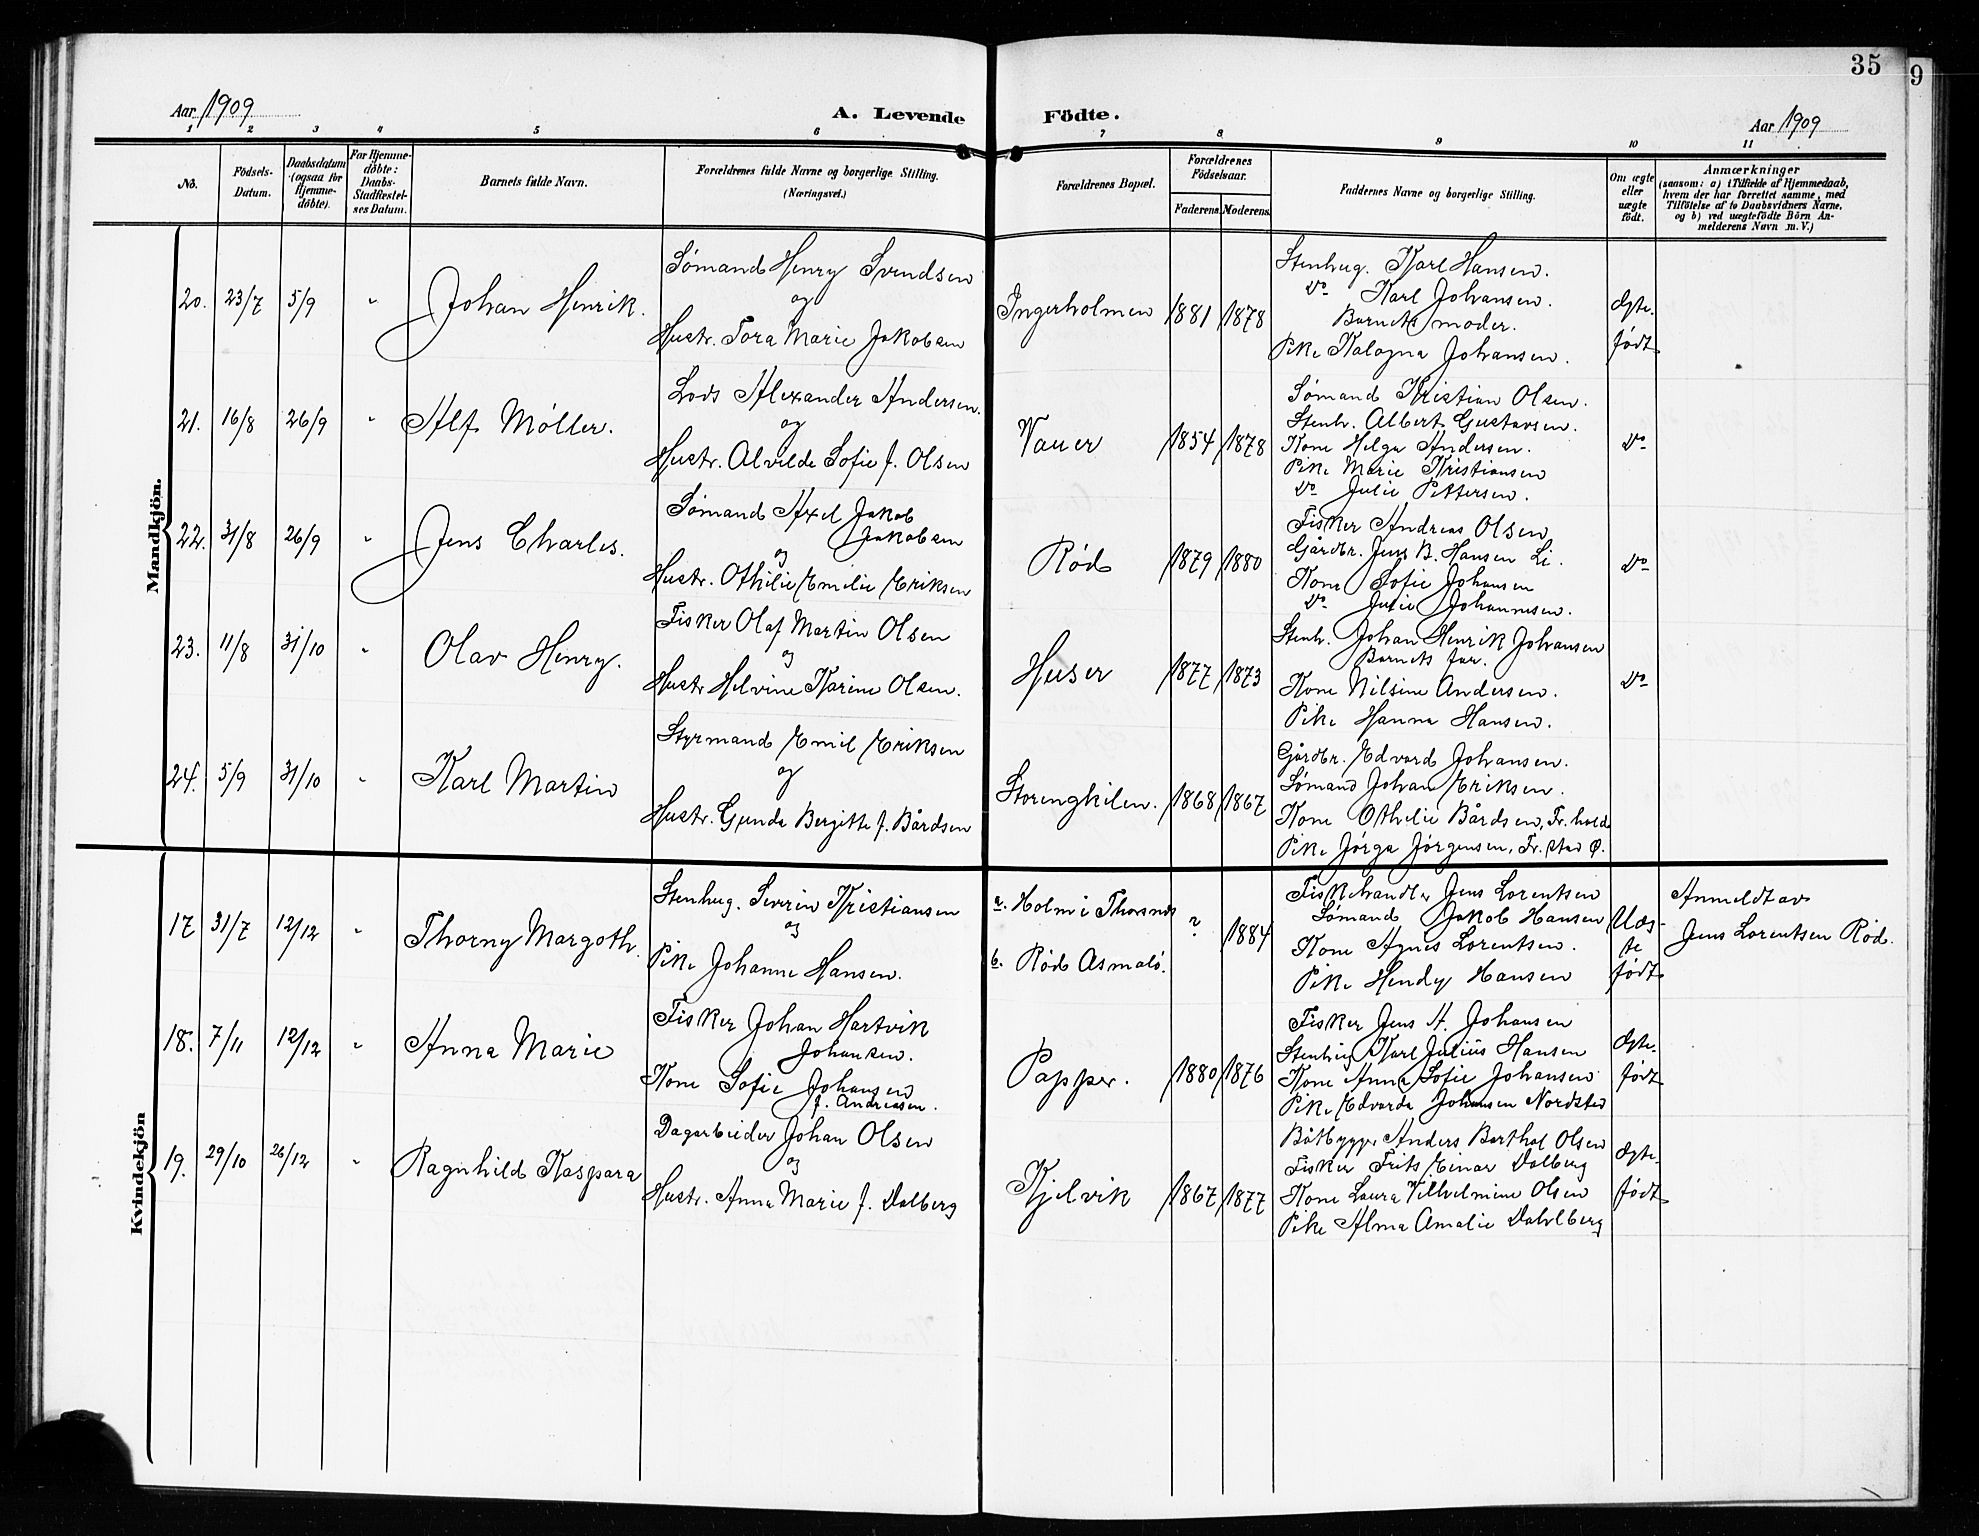 35
9
Aar 1909
A. Levende Födte.
Aar 1909
1 2 3 4 5 6 7 8 9 10 11
No.
Födsels-
Datum.
Daabsdatum
(ogsaa for
Hjemme-
döbte).
For Hjemme-
döbte:
Daabs-
Stadfæstel-
ses Datum.
Barnets fulde Navn.
Forældrenes fulde Navne og borgerlige Stilling.
(Næringsvei.)
Forældrenes Bopæl.
Forældrenes
Födselsaar.
Faderens.
Moderens.
Faddernes Navne og borgerlige Stilling.
Om ægte
eller
uægte
födt.
Anmærkninger
(saasom: a) i Tilfælde af Hjemmedaab,
hvem der har forrettet samme, med
Tilföielse af to Daabsvidners Navne,
og b) ved uægtefödte Börn An-
melderens Navn m. V.)
Mandkjön.
20. 23/7 5/9 " Johan Henrik.
Sømand Henry Svendsen
og
Hustr. Tora Marie Jakobsen
Ingerholmen 1881 1878
Stenhug. Karl Hansen.
do Karl Johansen.
Barnets moder.
Pike Kalogna Johansen.
Ægte.
født
21. 16/8 26/9 " Alf Møller.
Lods Alexander Andersen.
og
Hustr. Alvilde Sofie f. Olsen
Vauer 1854 1878
Sømand Kristian Olsen.
Stenh. Albert Gustavsen.
Kone Helga Andersen.
Pike Marie Kristiansen
do Julie Pettersen.
do
22. 31/8 26/9 " Jens Charles.
Sømand Axel Jakob
Jakobsen
og
Hustr. Othilie Emilie Eriksen
Rød 1879 1880
Fisker Andreas Olsen
Gårdbr. Jens B. Hansen Li.
Kone Sofie Johansen
do Julie Johannesen.
do
23. 11/8 31/10 " Olav Henry.
Fisker Olaf Martin Olsen
og
Hustr Helvine Karine Olsen.
Huser 1877 1873
Stenh. Johan Henrik Johansen
Barnets far.
Kone Nilsine Andersen.
Pike Hanna Hansen.
do
24. 5/9 31/10 " Karl Martin
Styrmand Emil Eriksen
og
Hustr. Gunda Bergitte f. Bårdsen
Storengkilen. 1868 1867
Gårdbr. Edvard Johansen.
Sømand Johan Eriksen.
Kone Othilie Bårdsen, Fr.hald
Pike Jørga Jørgensen, Fr.stad Ø.
Kvindekjön
17 31/7 12/12 " Thorny Margoth.
Stenhug. Severin Kristiansen
og
Pike Johanne Hansen.
a. Holm i Thorsnes
b. Rød Asmalø.
? 1884
Fiskehandler Jens Lorentsen
Sømand Jakob Hansen
Kone Agnes Lorentsen.
Pike Hendy Hansen
Uæg-
te
født
Anmeldt av
Jens Lorentsen Rød.
18. 7/11 12/12 " Anna Marie
Fisker Johan Hartvik
Johansen.
Kone Sofie Johansen
f. Andreasen.
Papper. 1880 1876
Fisker Jens A. Johansen
Stenhug Karl Julius Hansen
Kone Anna Sofie Johansen
Pike Edvarda Johansen Nordsted
Ægte.
født
19. 29/10 26/12 " Ragnhild Kaspara
Dagarbeider Johan Olsen
og
Hustr. Anna Marie f. Dalberg
Kjelvik 1867 1877
Båtbygger Anders Barthol Olsen
Fisker Frits Einar Dalberg
Kone Laura Vilhelmine Olsen
Pike Alma Amalie Dahlberg
Ægte.
født